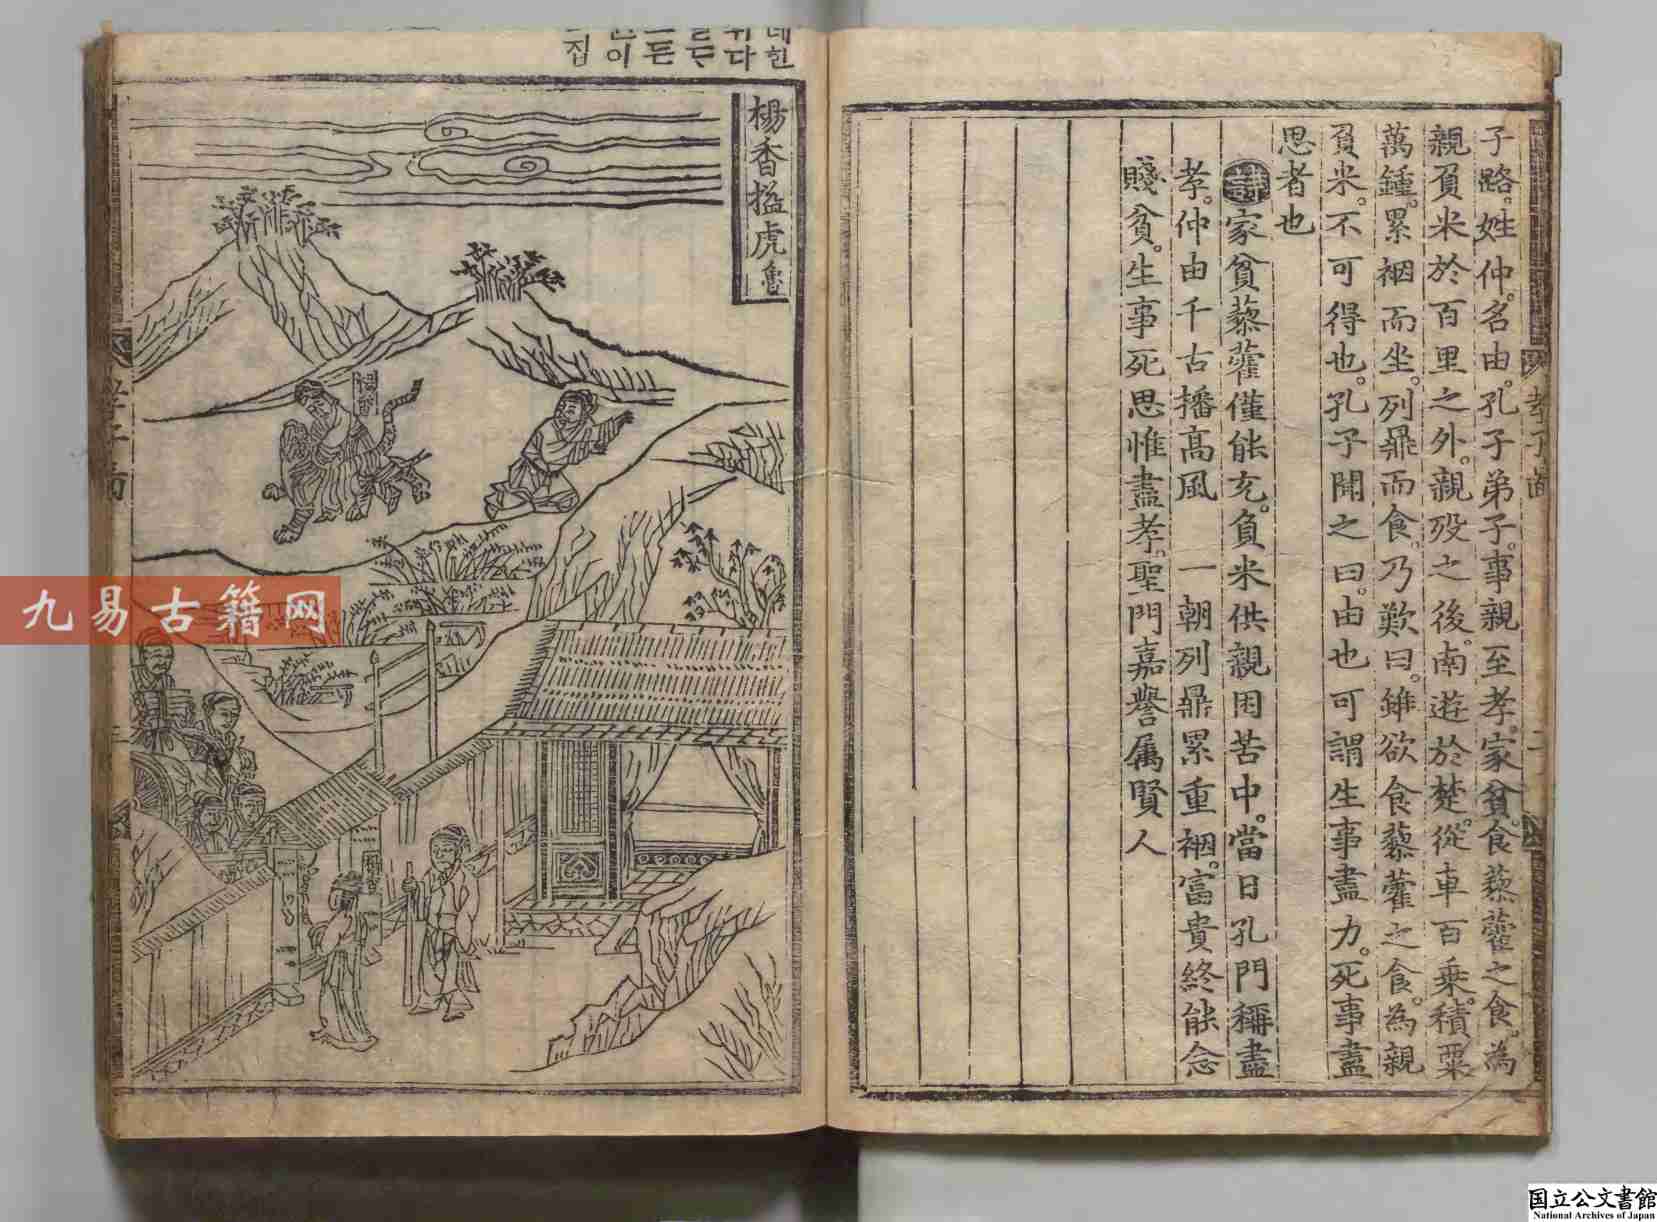 子路。姓仲。名由。孔子弟子。事親至孝。家貧。食藜藿之食。為
親負米於百里之外。親歿之後。南遊於楚。從車百乘。積粟
萬鍾。累裀而坐。列鼎而食。乃歎曰。雖欲食藜藿之食。為親
負米。不可得也。孔子聞之曰。由也可謂生事盡力。死事盡
思者也
詩家貧藜藿僅能充。負米供親困苦中。當日孔門稱盡
孝。仲由千古播高風 一朝列鼎累重裀。富貴終能念
賤貧。生事死思惟盡孝。聖門嘉譽属賢人
孝子圖
楊香搤虎魯
孝子圖
三
九易古籍网
国立公文書館
National Archives of Japan